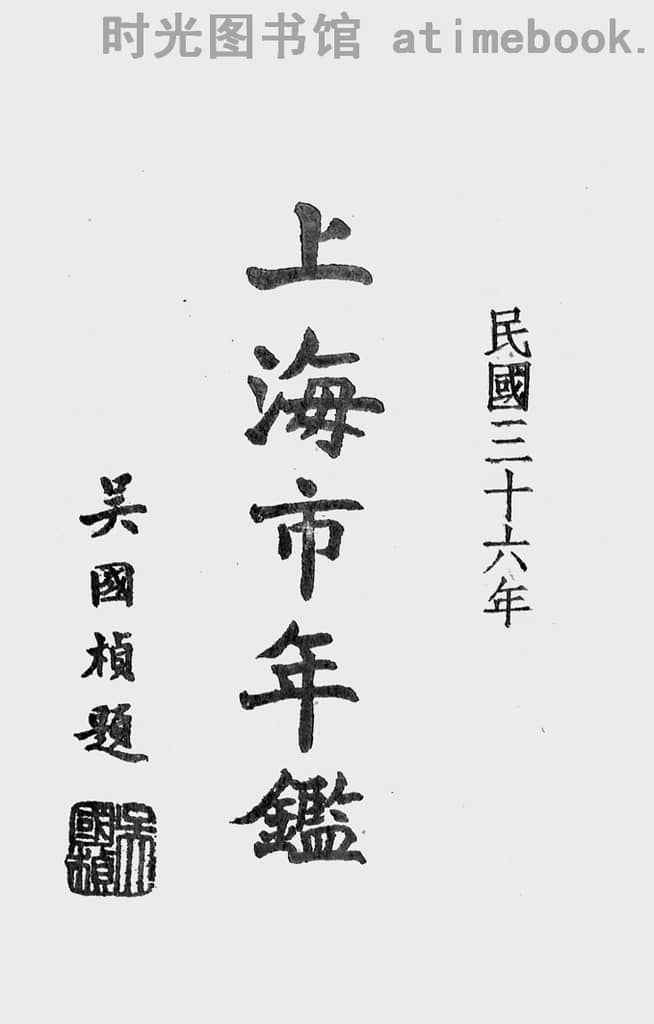 时光图书馆 atimebook.
民國三十六年
上海市年鑑
吴國楨題
吴國楨